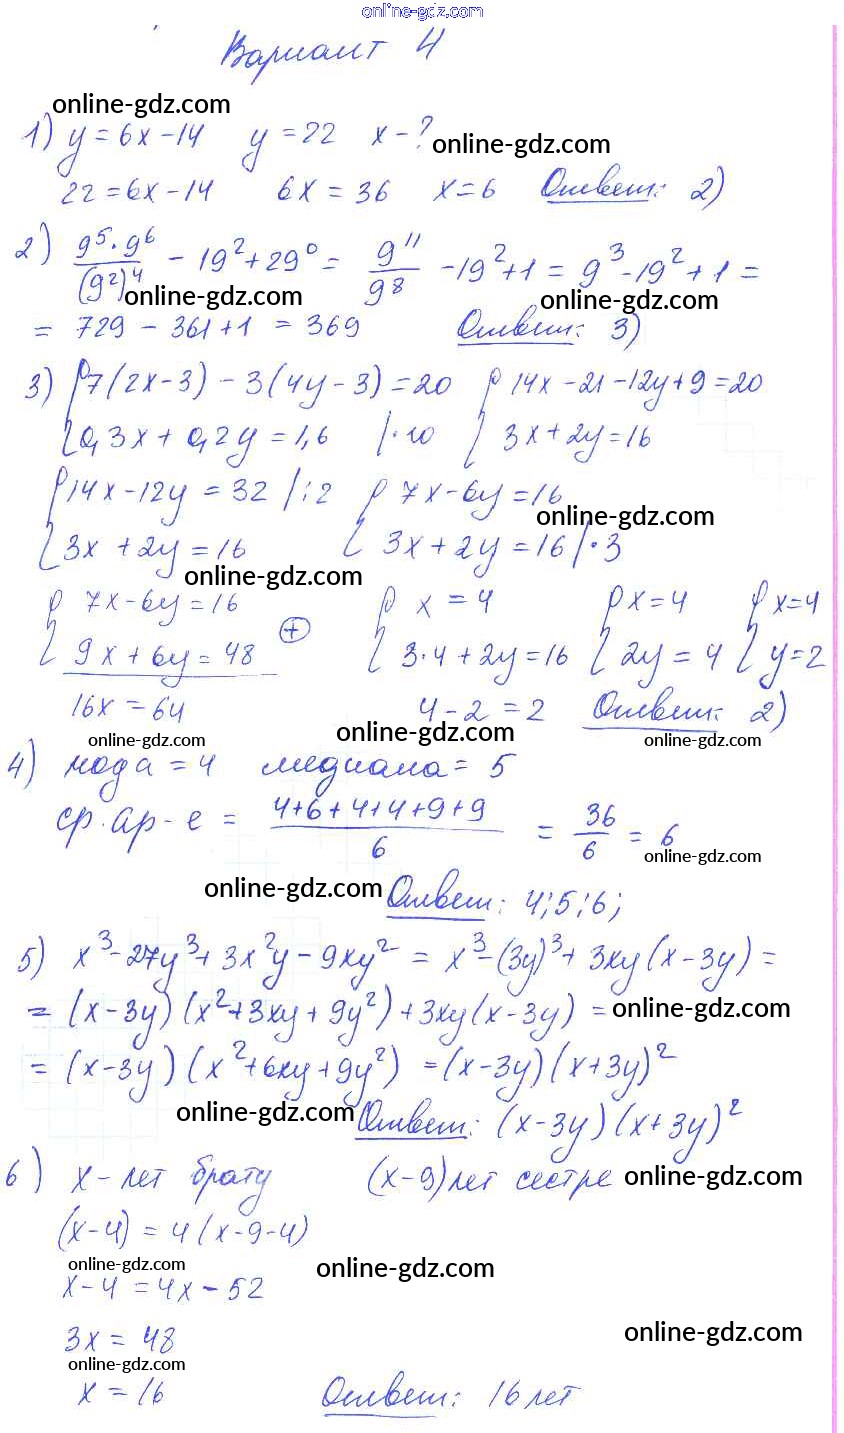 online-gdz.com
Вариант 4
online-gdz.com
1) y = 6x - 14   y = 22   x - ?   online-gdz.com
22 = 6x - 14   6x = 36   x = 6   Ответ: 2)
2) 9⁵·9⁶/(9²)⁴ - 19² + 29⁰ = 9¹¹/9⁸ - 19² + 1 = 9³ - 19² + 1 =
online-gdz.com   online-gdz.com
= 729 - 361 + 1 = 369   Ответ: 3)
3) { 7(2x - 3) - 3(4y - 3) = 20   { 14x - 21 - 12y + 9 = 20
0,3x + 0,2y = 1,6   |·10   3x + 2y = 16
{ 14x - 12y = 32 | : 2   { 7x - 6y = 16
online-gdz.com
3x + 2y = 16   3x + 2y = 16 |·3
online-gdz.com
{ 7x - 6y = 16   { x = 4   { x = 4   { x = 4
9x + 6y = 48   (+)   3·4 + 2y = 16   2y = 4   y = 2
16x = 64   4 - 2 = 2   Ответ: 2)
online-gdz.com   online-gdz.com   online-gdz.com
4) мода = 4   медиана = 5
ср. ар-е = (4+6+4+4+9+9)/6 = 36/6 = 6
online-gdz.com
online-gdz.com   Ответ: 4; 5; 6;
5) x³ - 27y³ + 3x²y - 9xy² = x³ - (3y)³ + 3xy(x - 3y) =
= (x - 3y)(x² + 3xy + 9y²) + 3xy(x - 3y) = online-gdz.com
= (x - 3y)(x² + 6xy + 9y²) = (x - 3y)(x + 3y)²
online-gdz.com   Ответ: (x - 3y)(x + 3y)²
6) x - лет брату   (x - 9) лет сестре   online-gdz.com
(x - 4) = 4(x - 9 - 4)
online-gdz.com   online-gdz.com
x - 4 = 4x - 52
3x = 48   online-gdz.com
online-gdz.com
x = 16   Ответ: 16 лет